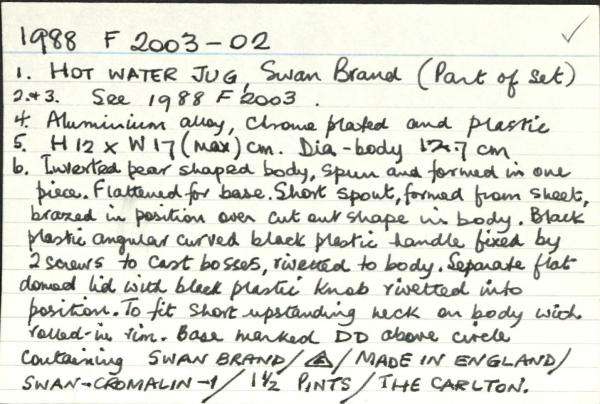 1988 F 2003-02
1. HOT WATER JUG, Swan Brand (Part of set)
2.+3. See 1988 F 2003.
4. Aluminium alloy, Chrome plated and plastic
5. H 12 x W 17 (max) cm. Dia-body 12.7 cm
6. Inverted pear shaped body, spun and formed in one
piece. Flattened for base. Short spout, formed from sheet,
brazed in position over cut out shape in body. Black
plastic angular curved black plastic handle fixed by
2 screws to cast bosses, rivetted to body. Separate flat
domed lid with black plastic knob rivetted into
position. To fit short upstanding neck on body with
rolled-in rim. Base marked DD above circle
containing SWAN BRAND/ /MADE IN ENGLAND/
SWAN-CROMALIN-1/ 1½ PINTS/ THE CARLTON.